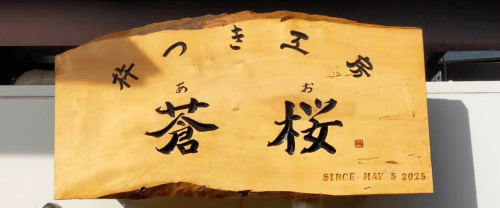 杵つき工房
あお
蒼桜
SINCE MAY 5 2025